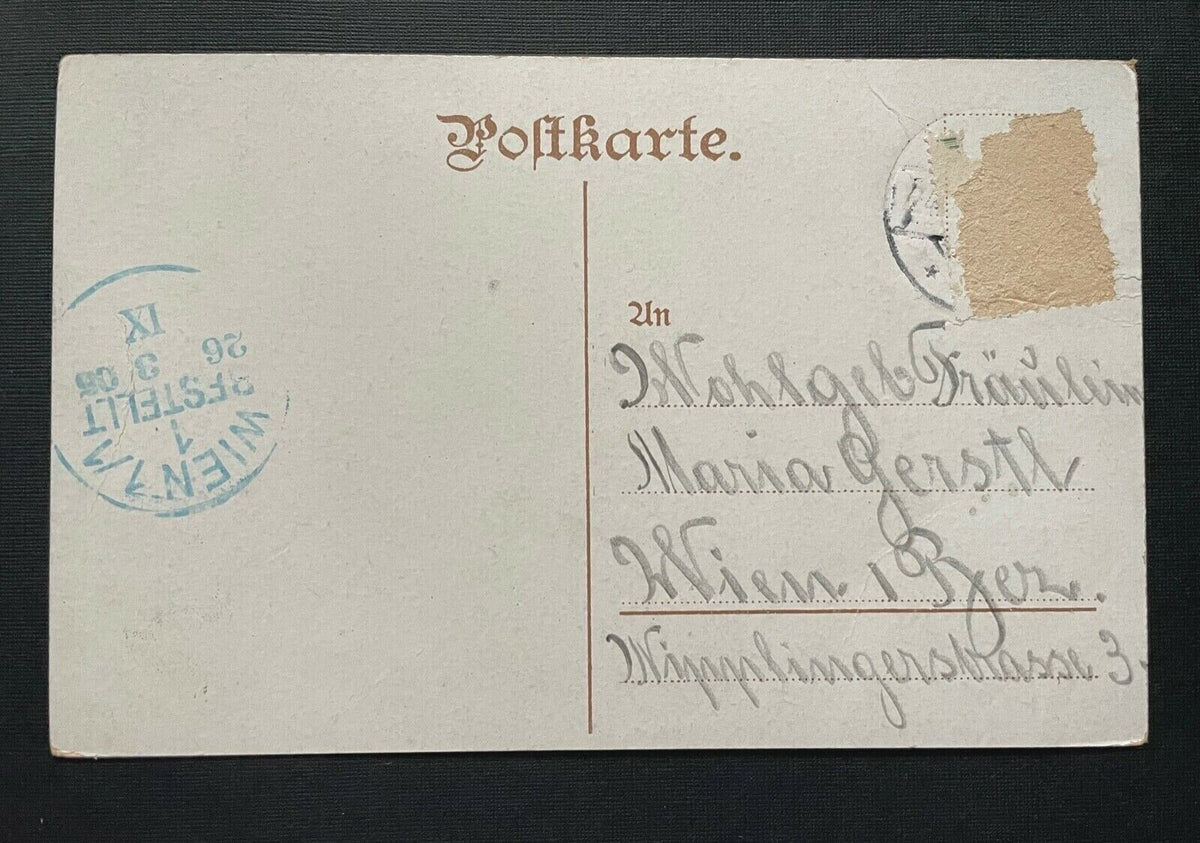 Postkarte.
An
Wohlgeb Fräulein
Maria Gerstl
Wien 1 Bez.
Wipplingerstrasse 3.
WIEN 1/1
1
BESTELLT
26 3 06
IX